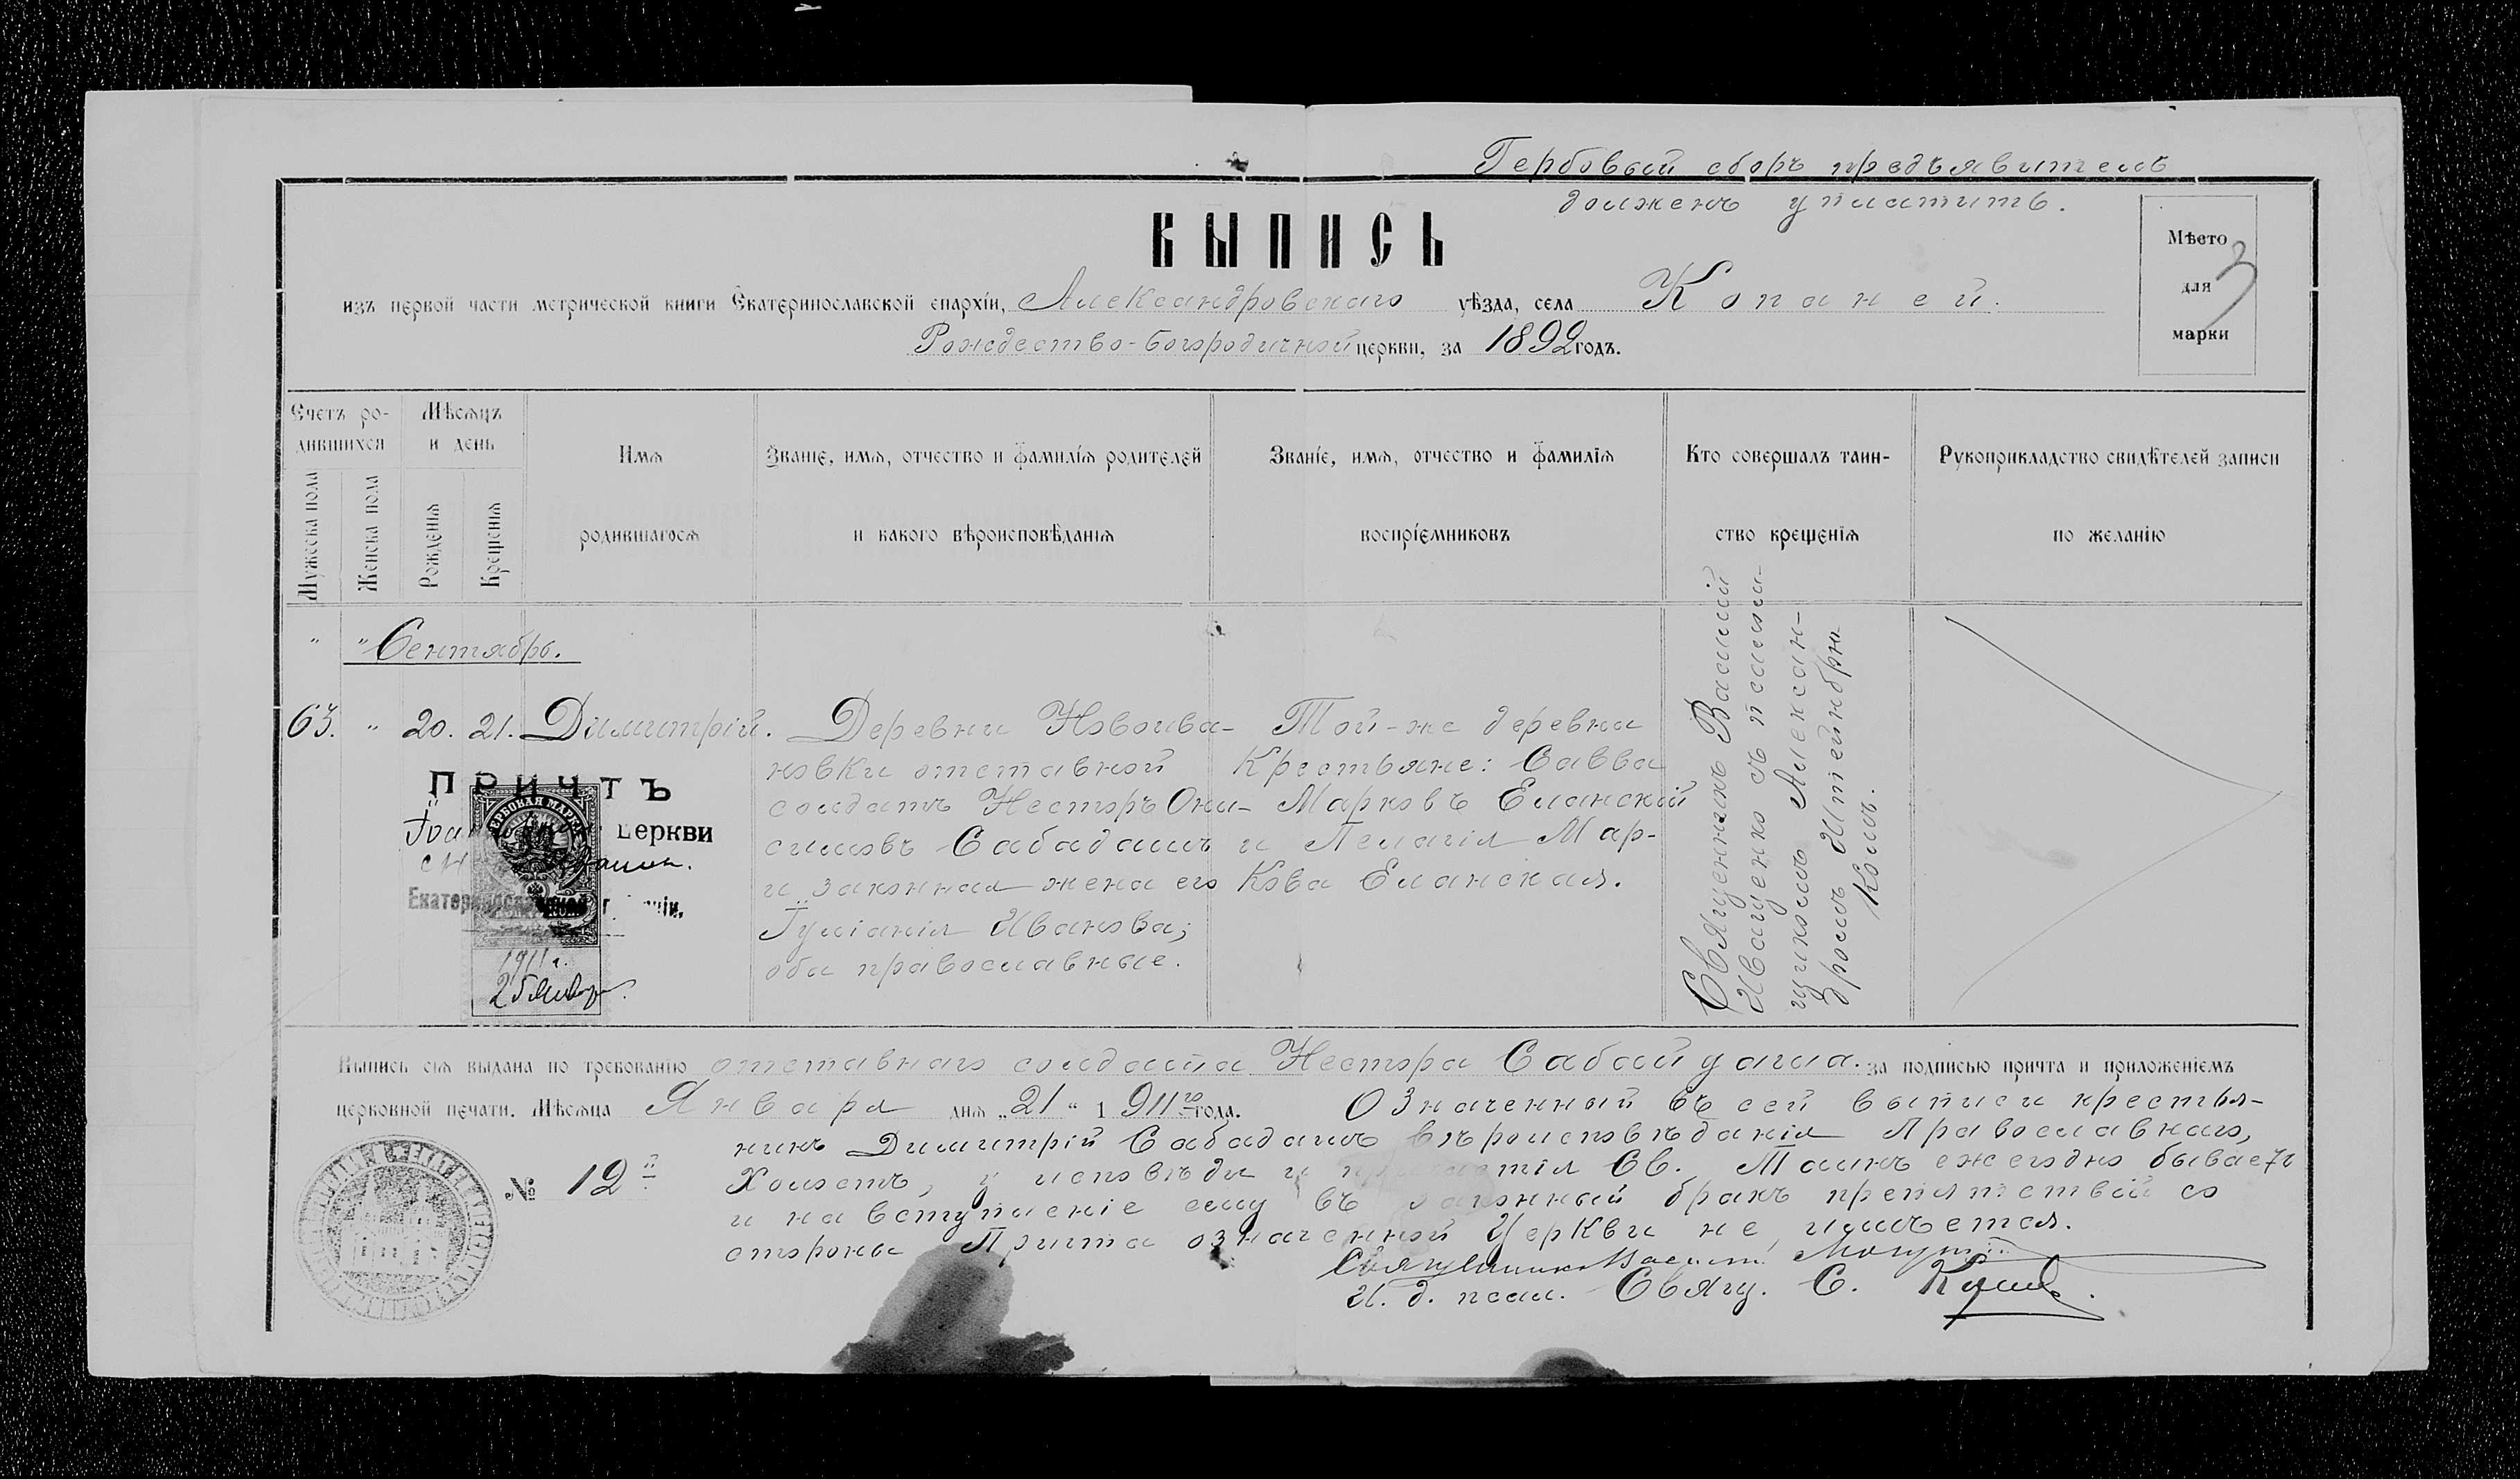 Гербовый сборъ предъявитель
долженъ уплатить.
ВЫПИСЬ
изъ первой части метрической книги Екатеринославской епархіи, Александровскаго уѣзда, села Копаней.
Рождество-Богородичной церкви, за 1892 годъ.
Мѣсто
для
марки
3
Счетъ ро-
дившихся
Мужеска пола
Женска пола
Мѣсяцъ
и день
Рожденія
Крещенія
Имя
родившагося
Званіе, имя, отчество и фамилія родителей
и какого вѣроисповѣданія
Званіе, имя, отчество и фамилія
воспріемниковъ
Кто совершалъ таин-
ство крещенія
Рукоприкладство свидѣтелей записи
по желанію
" " Сентябрь.
63. " 20. 21. Димитрій.
Деревни Новоива-
новки отставной
солдатъ Несторъ Они-
симовъ Сабадашъ
и законная жена его
Іуліанія Иванова;
оба православные.
Той-же деревни
Крестьяне: Савва
Марковъ Еланскій
и Пелагія Мар-
кова Еланская.
Священникъ Василій
Иващенко съ псалом-
щикомъ Алексан-
дромъ Штейнбри-
комъ.
ПРИЧТЪ
церкви
ГЕРБОВАЯ МАРКА
1911 г.
25 Январ.
Выпись сія выдана по требованію отставнаго солдата Нестора Сабайдаша. за подписью причта и приложеніемъ
церковной печати. Мѣсяца Января дня „21“ 1911го года. Означенный въ сей выписи крестья-
нинъ Димитрій Сабадашъ вѣроисповѣданія Православнаго,
Холостъ, у исповѣди и причастія Св. Таинъ ежегодно бываетъ
и на вступленіе ему въ законный бракъ препятствій со
стороны Причта означенной Церкви не имѣется.
№ 12й
Священникъ Василій
И. д. псал. Свящ. С.